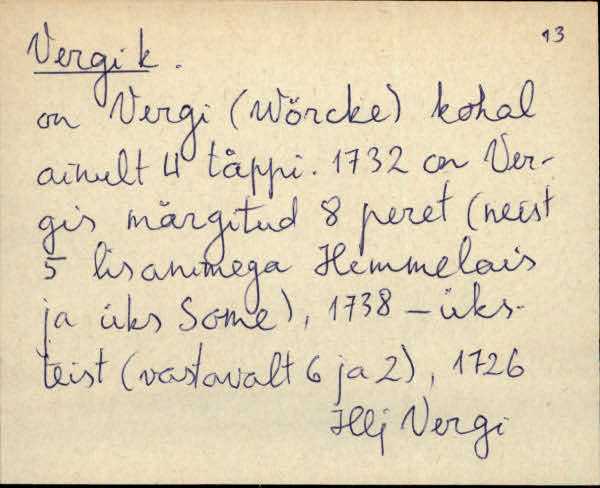 13
Vergi k.
on Vergi (Wörcke) kohal
ainult 4 täppi. 1732 on Ver-
gis märgitud 8 peret (neist
5 lisanimega Hemmelais
ja üks Some), 1738 – üks-
teist (vastavalt 6 ja 2), 1726
Hlj Vergi